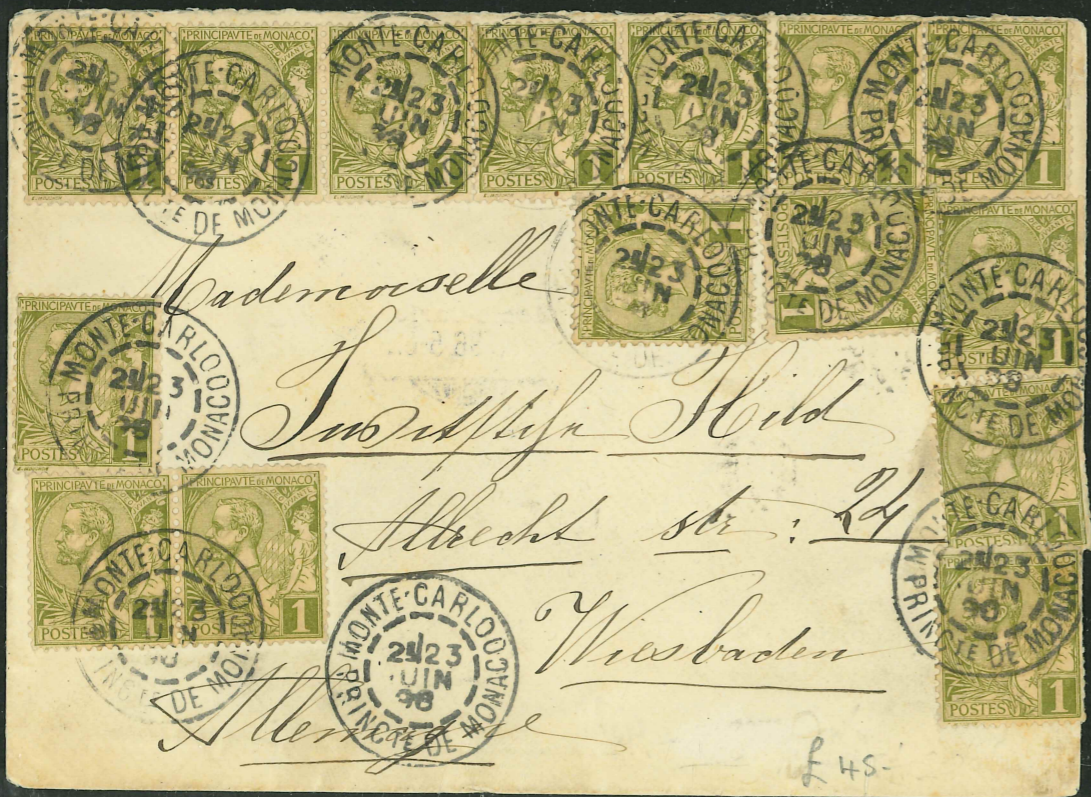 PRINCIPAVTE DE MONACO
POSTES 1
MONTE-CARLO
PRINCTE DE MONACO
2E/23
JUIN
98
Mademoiselle
Hild
Albrecht str: 24
Wiesbaden
Allemagne
£ 45-